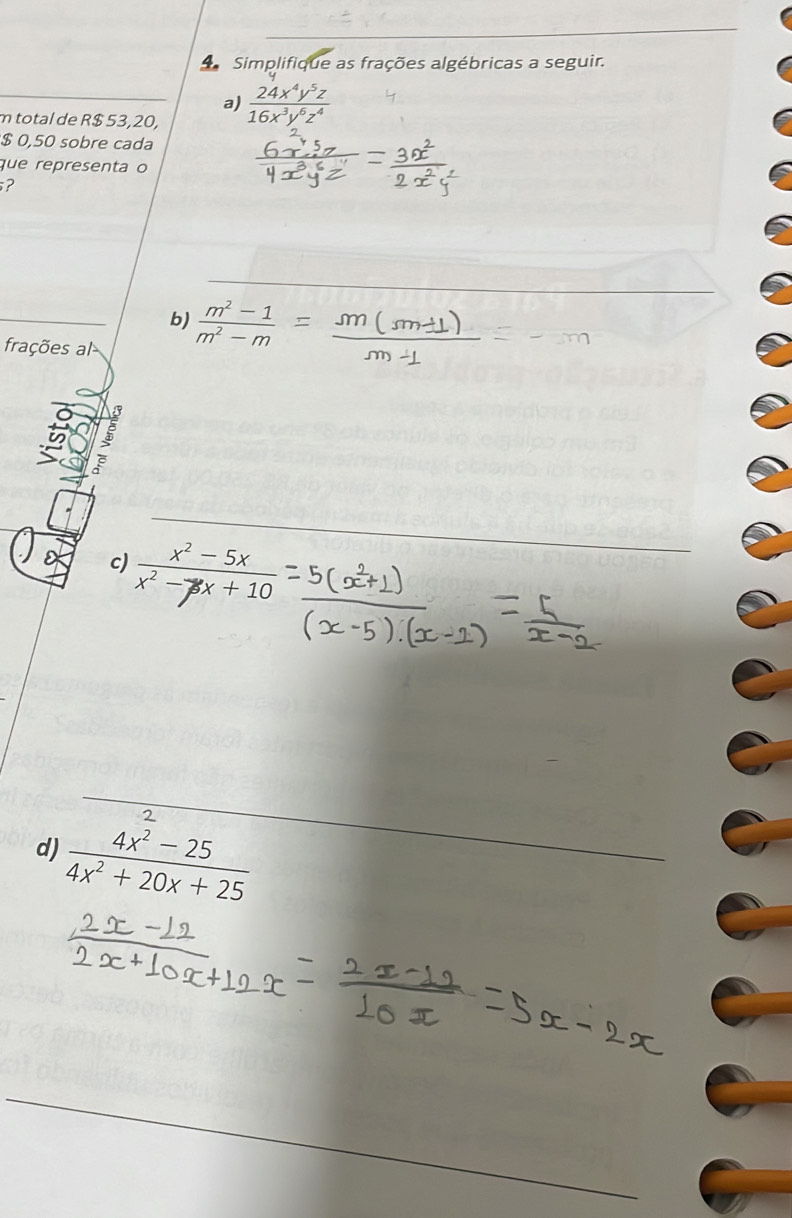 4. Simplifique as frações algébricas a seguir.
m total de R$ 53,20,
$ 0,50 sobre cada
que representa o
s?
a) 24x⁴y⁵z / 16x³y⁶z⁴
4
4
6x⁴y⁵z / 4x³y⁶z⁴ = 3x² / 2x²y²
2
b) m² − 1 / m² − m = m(m+1) / m+1 = − m
frações al-
Visto!
Prof Veronica
c) x² − 5x / x² − 7x + 10 = 5(x²+1) / (x−5).(x−2) = 5 / x−2
2
d) 4x² − 25 / 4x² + 20x + 25
2x − 12 / 2x + 10x + 12x = 2x − 12 / 10x = 5x − 2x